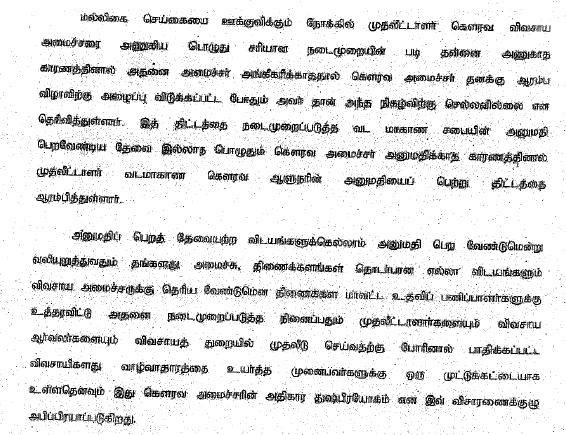 மல்லிகை செய்கையை ஊக்குவிக்கும் நோக்கில் முதலீட்டாளர் கௌரவ விவசாய
அமைச்சரை அணுகிய பொழுது சரியான நடைமுறையின் படி தன்னை அணுகாத
காரணத்தினால் அதனை அமைச்சர் அங்கீகரிக்காததால் கௌரவ அமைச்சர் தனக்கு ஆரம்ப
விழாவிற்கு அழைப்பு விடுக்கப்பட்ட போதும் அவர் தான் அந்த நிகழ்விற்கு செல்லவில்லை என
தெரிவித்துள்ளார். இத் திட்டத்தை நடைமுறைப்படுத்த வட மாகாண சபையின் அனுமதி
பெறவேண்டிய தேவை இல்லாத பொழுதும் கௌரவ அமைச்சர் அனுமதிக்காத காரணத்தினால்
முதலீட்டாளர் வடமாகாண கௌரவ ஆளுநரின் அனுமதியைப் பெற்று திட்டத்தை
ஆரம்பித்துள்ளார்.
அனுமதிப் பெறத் தேவையற்ற விடயங்களுக்கெல்லாம் அனுமதி பெற வேண்டுமென்று
வலியுறுத்துவதும் தங்களது அமைச்சு, திணைக்களங்கள் தொடர்பான எல்லா விடயங்களும்
விவசாய அமைச்சருக்கு தெரிய வேண்டுமென திணைக்கள மாவட்ட உதவிப் பணிப்பாளர்களுக்கு
உத்தரவிட்டு அதனை நடைமுறைப்படுத்த நினைப்பதும் முதலீட்டாளர்களையும் விவசாய
ஆர்வலர்களையும் விவசாயத் துறையில் முதலீடு செய்வதற்கு போரினால் பாதிக்கப்பட்ட
விவசாயிகளது வாழ்வாதாரத்தை உயர்த்த முனைபவர்களுக்கு ஒரு முட்டுக்கட்டையாக
உள்ளதெனவும் இது கௌரவ அமைச்சரின் அதிகார துஷ்பிரயோகம் என இவ் விசாரணைக்குழு
அபிப்பிராயப்படுகிறது.